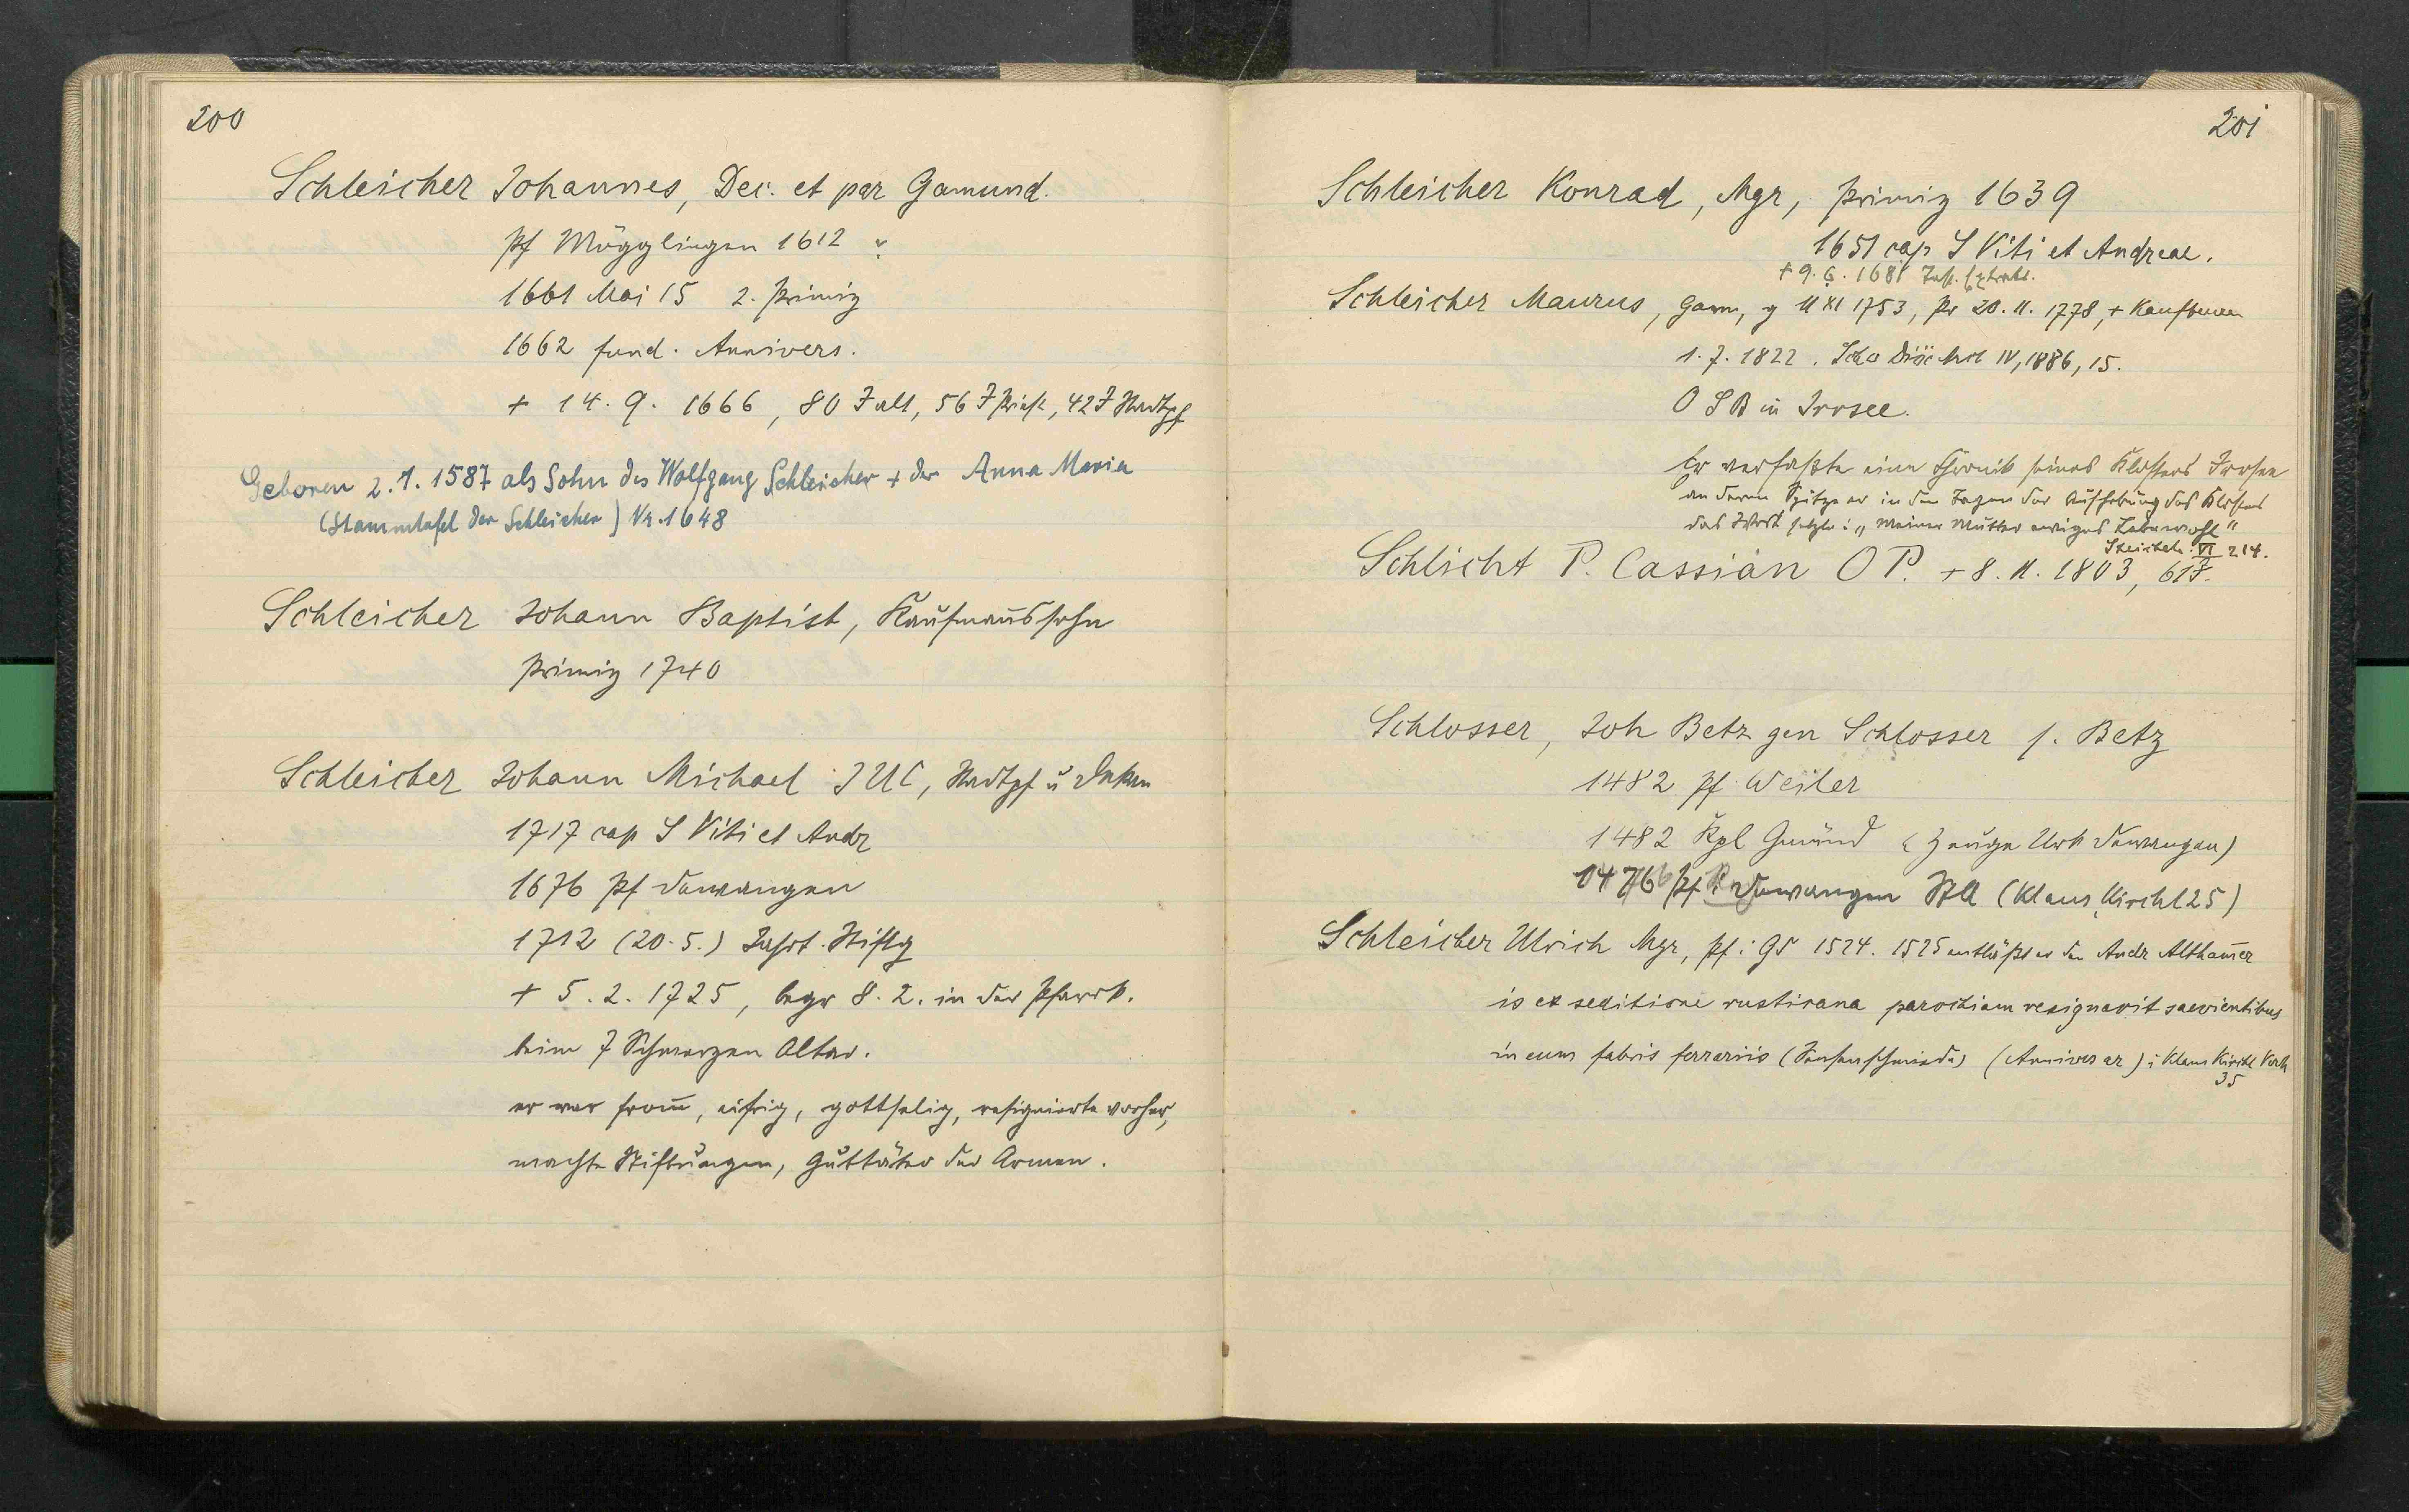 200
Schleicher Johannes, Dec. et par Gamund.
Pf Mögglingen 1612
1661 Mai 15 2. Primiz
1662 fund. Annivers.
+ 14. 9. 1666, 80 J alt, 56 J Priest, 42 J Stadtpf
Geboren 2. 1. 1587 als Sohn des Wolfgang Schleicher + der Anna Maria
(Stammtafel der Schleicher) Nr. 1648
Schleicher Johann Baptist, Kaufmannssohn
Primiz 1740
Schleicher Johann Michael JUC, Stadtpf u Dekan
1717 cap S Viti et Andr
1676 Pf Dewangen
1712 (20. 5.) Jahrt. Stiftg
+ 5. 2. 1725, begr 8. 2. in der Pfarrk.
beim 7 Schmerzen Altar.
er war from̅, eifrig, gottselig, resignierte vorher,
machte Stiftungen, Guttäter der Armen.
201
Schleicher Konrad, Mgr, Primiz 1639
1651 cap S Viti et Andreae.
+ 9. 6. 1681
Schleicher Maurus, Gam, g 11 XI 1753, Pr 20. 11. 1778, + Kaufbeuren
1. 7. 1822. Schw Diöc Arch IV, 1886, 15.
O S B in Irrsee.
Er verfaßte eine Chronik seines Klosters Irrsee
an deren Spitze er in den Tagen der Aufhebung des Klosters
das Wort setzte: „Meiner Mutter ewiges Lebewohl"
Steichele VI 214.
Schlicht P. Cassian O P. + 8. 11. 1803, 61 J.
Schlosser, Joh Betz gen Schlosser s. Betz
1482 Pf Weiler
1482 Kpl Gmünd (Zeuge Urk Dewangen)
1476 Pf Dewangen StA (Klaus, Kirchl 25)
Schleicher Ulrich Mgr, Pf i GD 1524. 1525 entläßt er den Andr Altham̅er
is ex seditione rusticana parochiam resignavit saevientibus
in eum fabris ferrariis (Sensenschmiede) (Anniversar) i Klaus Kirchl Verh
35